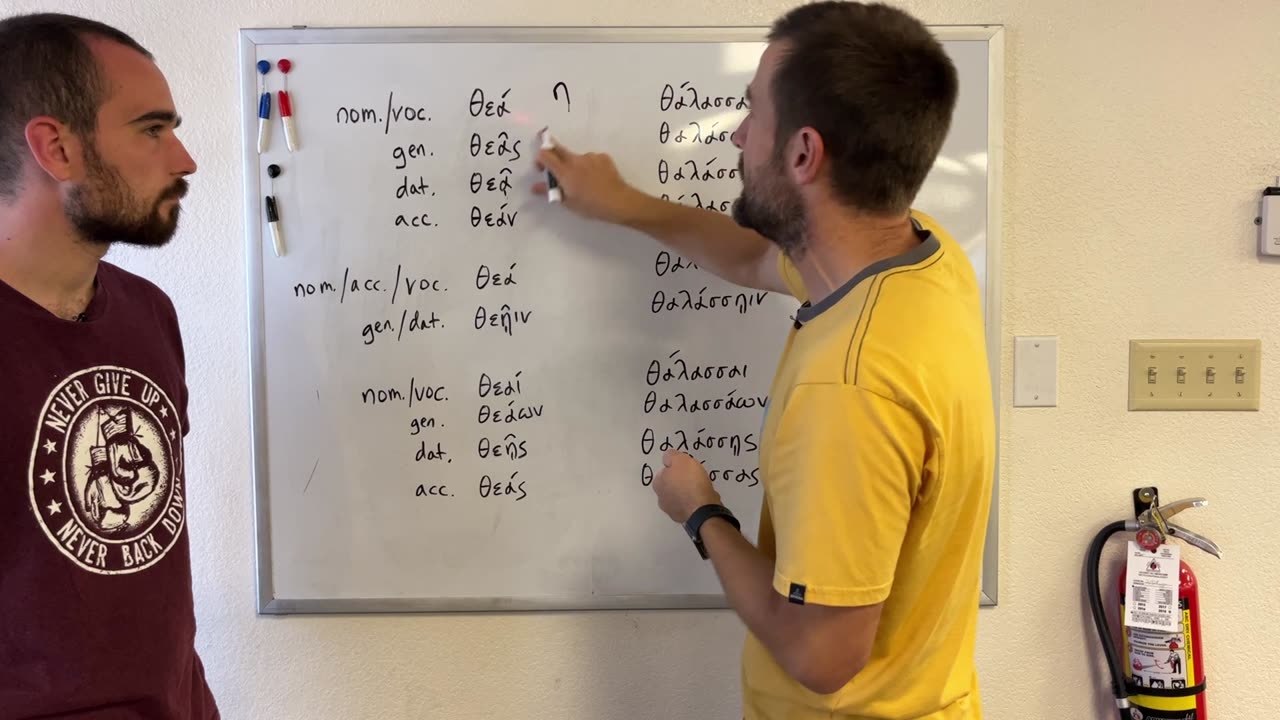 nom./voc. θεά η θάλασσα
gen. θεᾶς
dat. θεᾷ
acc. θεάν
nom./acc./voc. θεά
gen./dat. θεῇιν θαλάσσῃιν
nom./voc. θεαί θάλασσαι
gen. θεάων θαλασσάων
dat. θεῇς θαλάσσῃς
acc. θεάς
NEVER GIVE UP
NEVER BACK DOWN